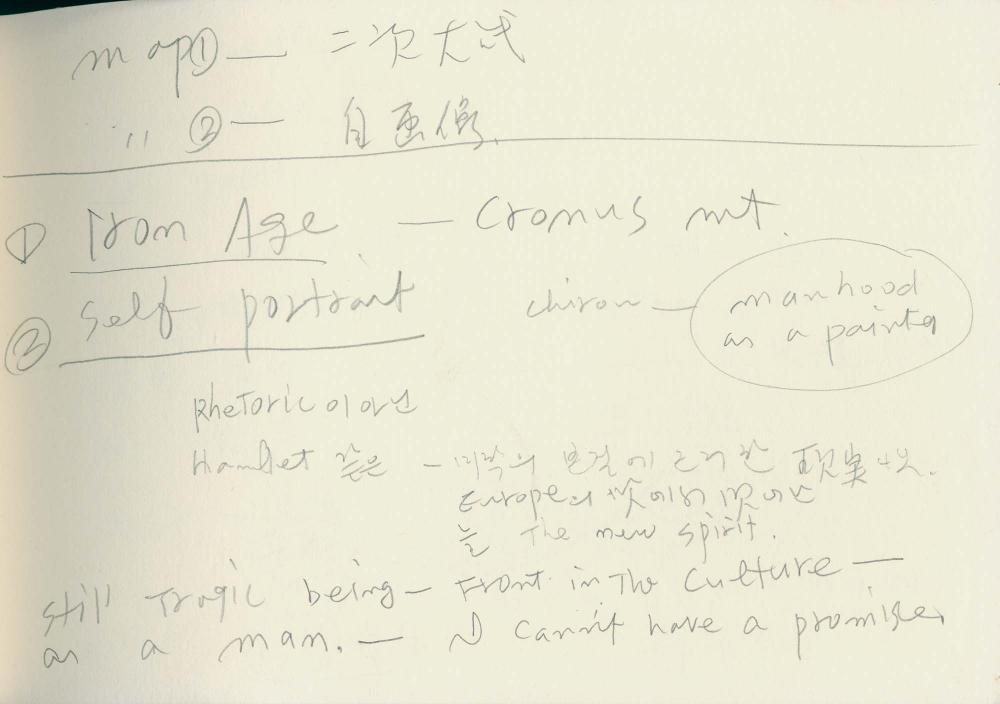 map① — 二次大戦
〃 ② — 自画像.
① Iron Age — Cronus mt.
② self portrait chiron — manhood
as a painter
Rhetoric이 아닌
Hamlet 같은 — 의 에 한 現実
Europe
the new spirit.
still Tragic being — Front in The Culture —
as a man. — I cannit have a promise.